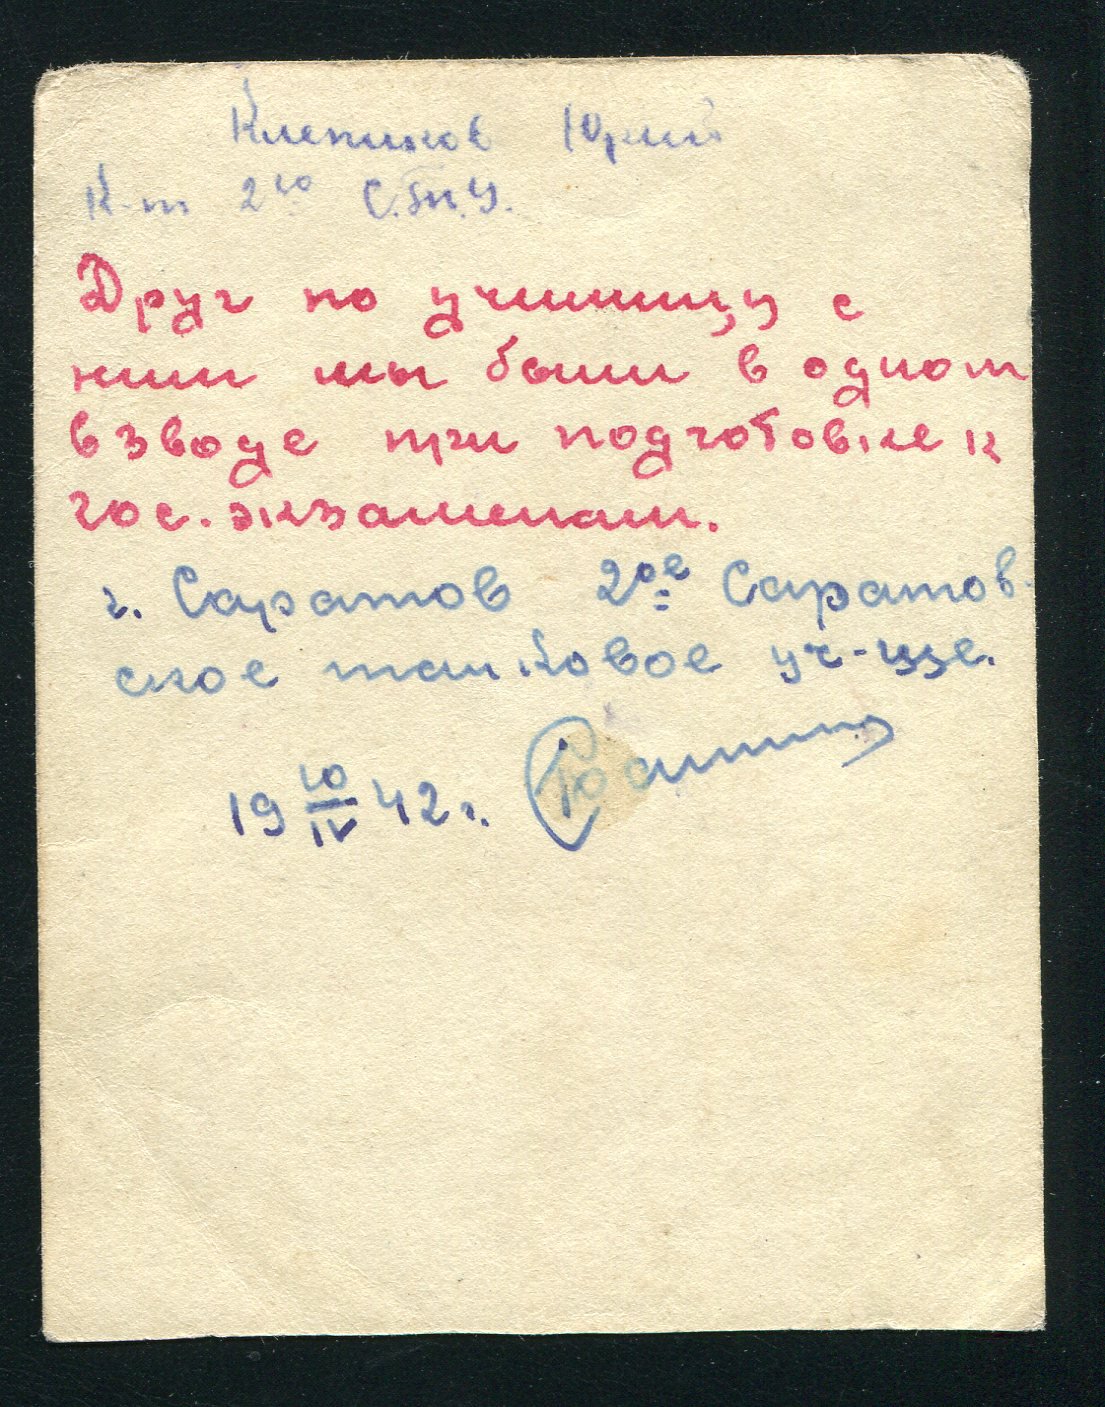 Клепиков Юрий
К-т 2го С.Т.У.
Друг по училищу с
ним мы были в одном
взводе при подготовке к
гос. экзаменам.
г. Саратов 2ое Саратов-
ское танковое уч-ще.
19 10/IV 42 г.